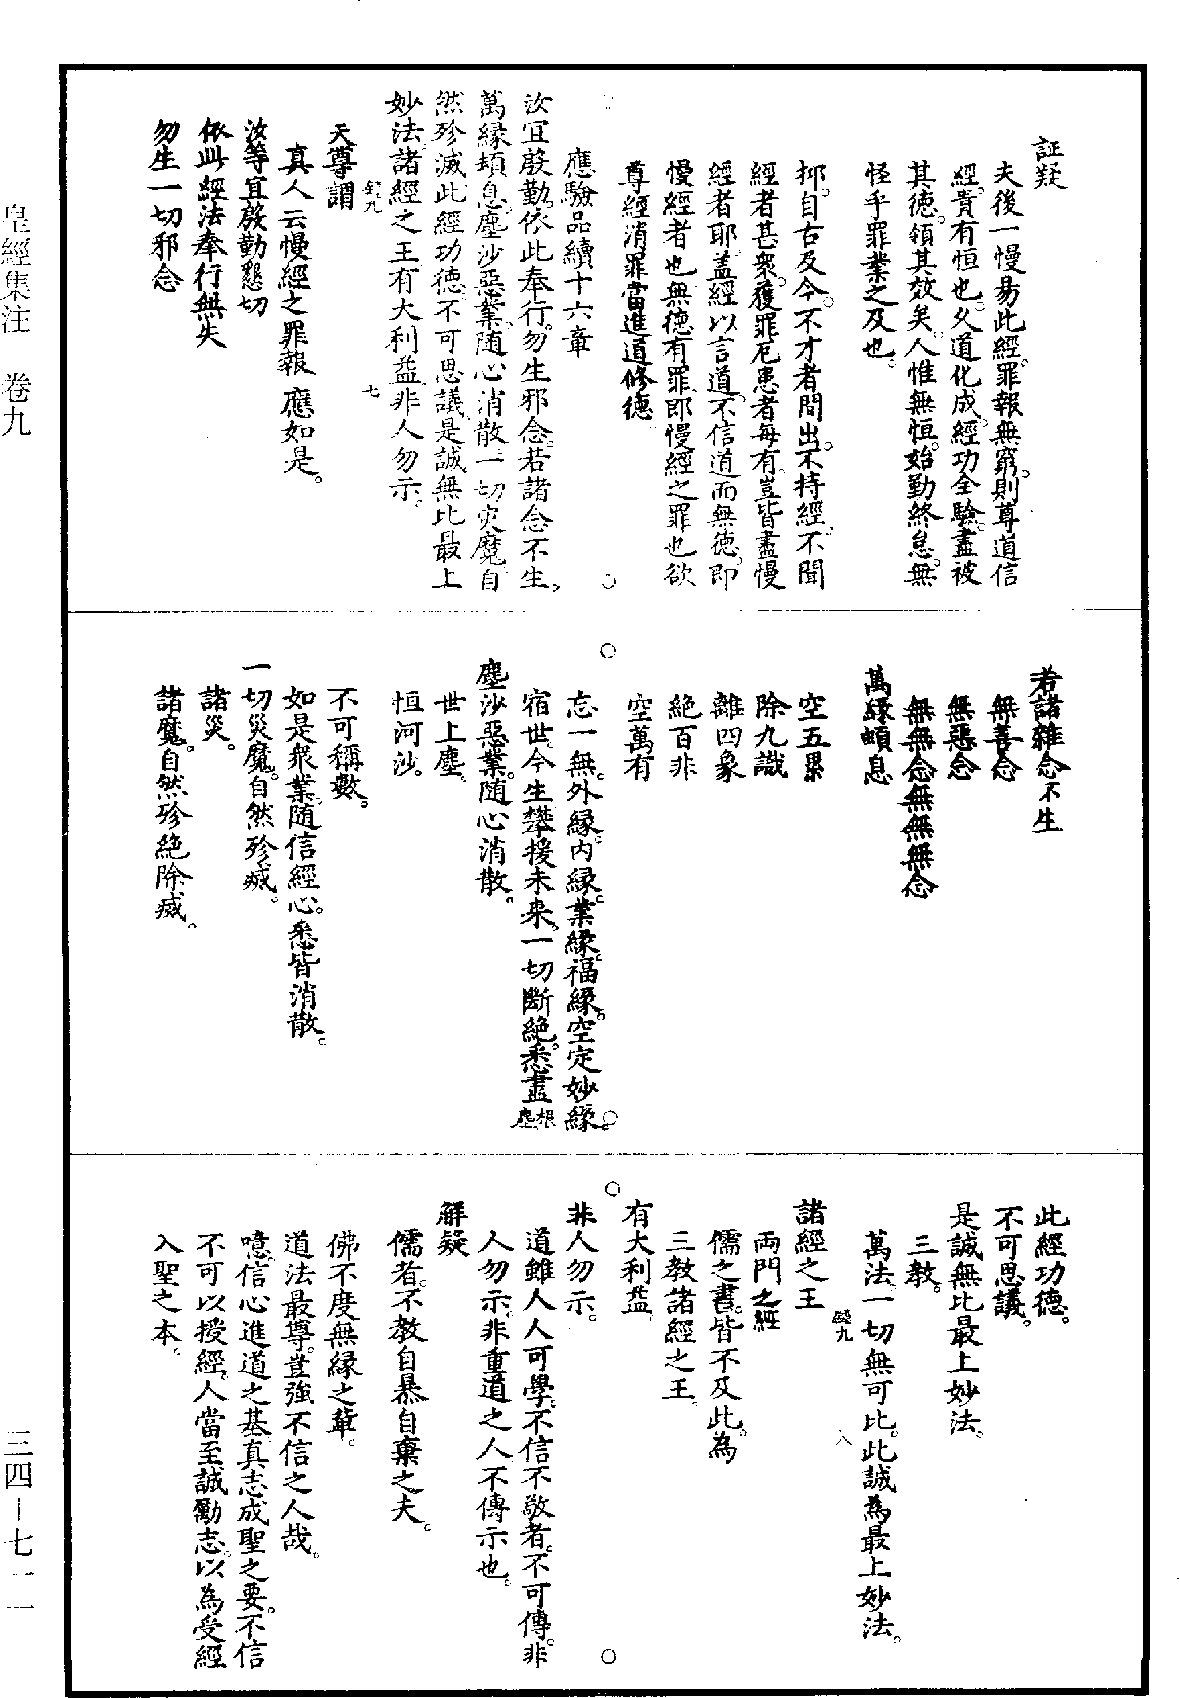 証疑
夫後一慢易此經。罪報無窮。則尊道信
經。貴有恒也。久道化成。經功全驗。盡被
其德。領其效矣。人惟無恒。始勤終怠。無
怪乎罪業之及也。
抑。自古及今。不才者間出。不持經。不聞
經者甚衆。獲罪厄患者每有。豈皆盡慢
經者耶。蓋經以言道。不信道而無德。即
慢經者也。無德有罪。即慢經之罪也。欲
尊經消罪。當進道修德
應驗品續十六章
汝宜殷勤。依此奉行。勿生邪念。若諸念不生。
萬緣頓息。塵沙惡業。隨心消散。一切災魔。自
然殄滅。此經功德。不可思議。是誠無比最上
妙法。諸經之王。有大利益。非人勿示。
七
天尊謂
真人云。慢經之罪報。應如是。
汝等宜殷勤懇切
依此經法奉行無失
勿生一切邪念
若諸雜念不生
無善念
無惡念
無無念無無無念
萬緣頓息
空五累
除九識
離四象
絕百非
空萬有
忘一無。外緣。內緣。業緣。福緣。空定妙緣。
宿世。今生。攀援未來。一切斷絕。悉盡根塵
塵沙惡業。隨心消散。
世上塵。
恒河沙。
不可稱數。
如是衆業。隨信經心。悉皆消散。
一切災魔。自然殄滅。
諸災。
諸魔。自然殄絕除滅。
此經功德。
不可思議。
是誠無比最上妙法。
三教。
萬法。一切無可比。此誠為最上妙法。
八
諸經之王
兩門之經
儒之書。皆不及此。為
三教諸經之王。
有大利益
非人勿示。
道雖人人可學。不信不敬者。不可傳。非
人勿示。非重道之人不傳示也。
解疑
儒者。不教自暴自棄之夫。
佛不度無緣之輩。
道法最尊。豈強不信之人哉。
噫。信心進道之基。真志成聖之要。不信
不可以授經。人當至誠勵志。以為受經
入聖之本。
皇經集注　卷九
三四－七一一